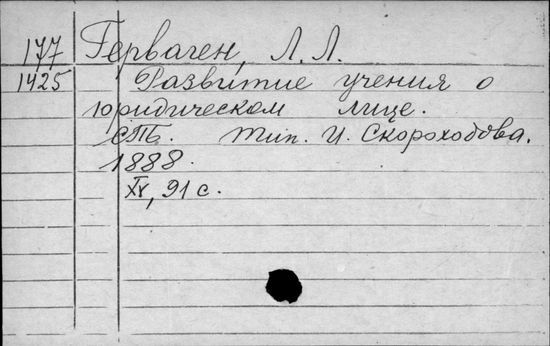 177 Герваген, Л. Л.
1425 Развитие учения о
юридическом лице.
СПб. Тип. И. Скороходова.
1888.
XV, 91 с.